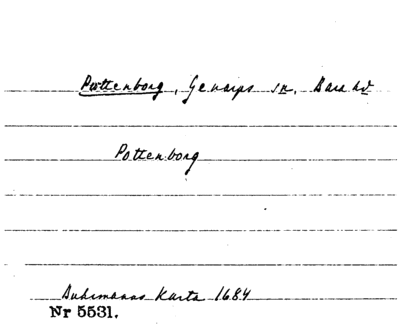 Pottenborg, Genarps sn, Bara hd
Pottenborg
Buhrmanns Karta 1684
Nr 5531.